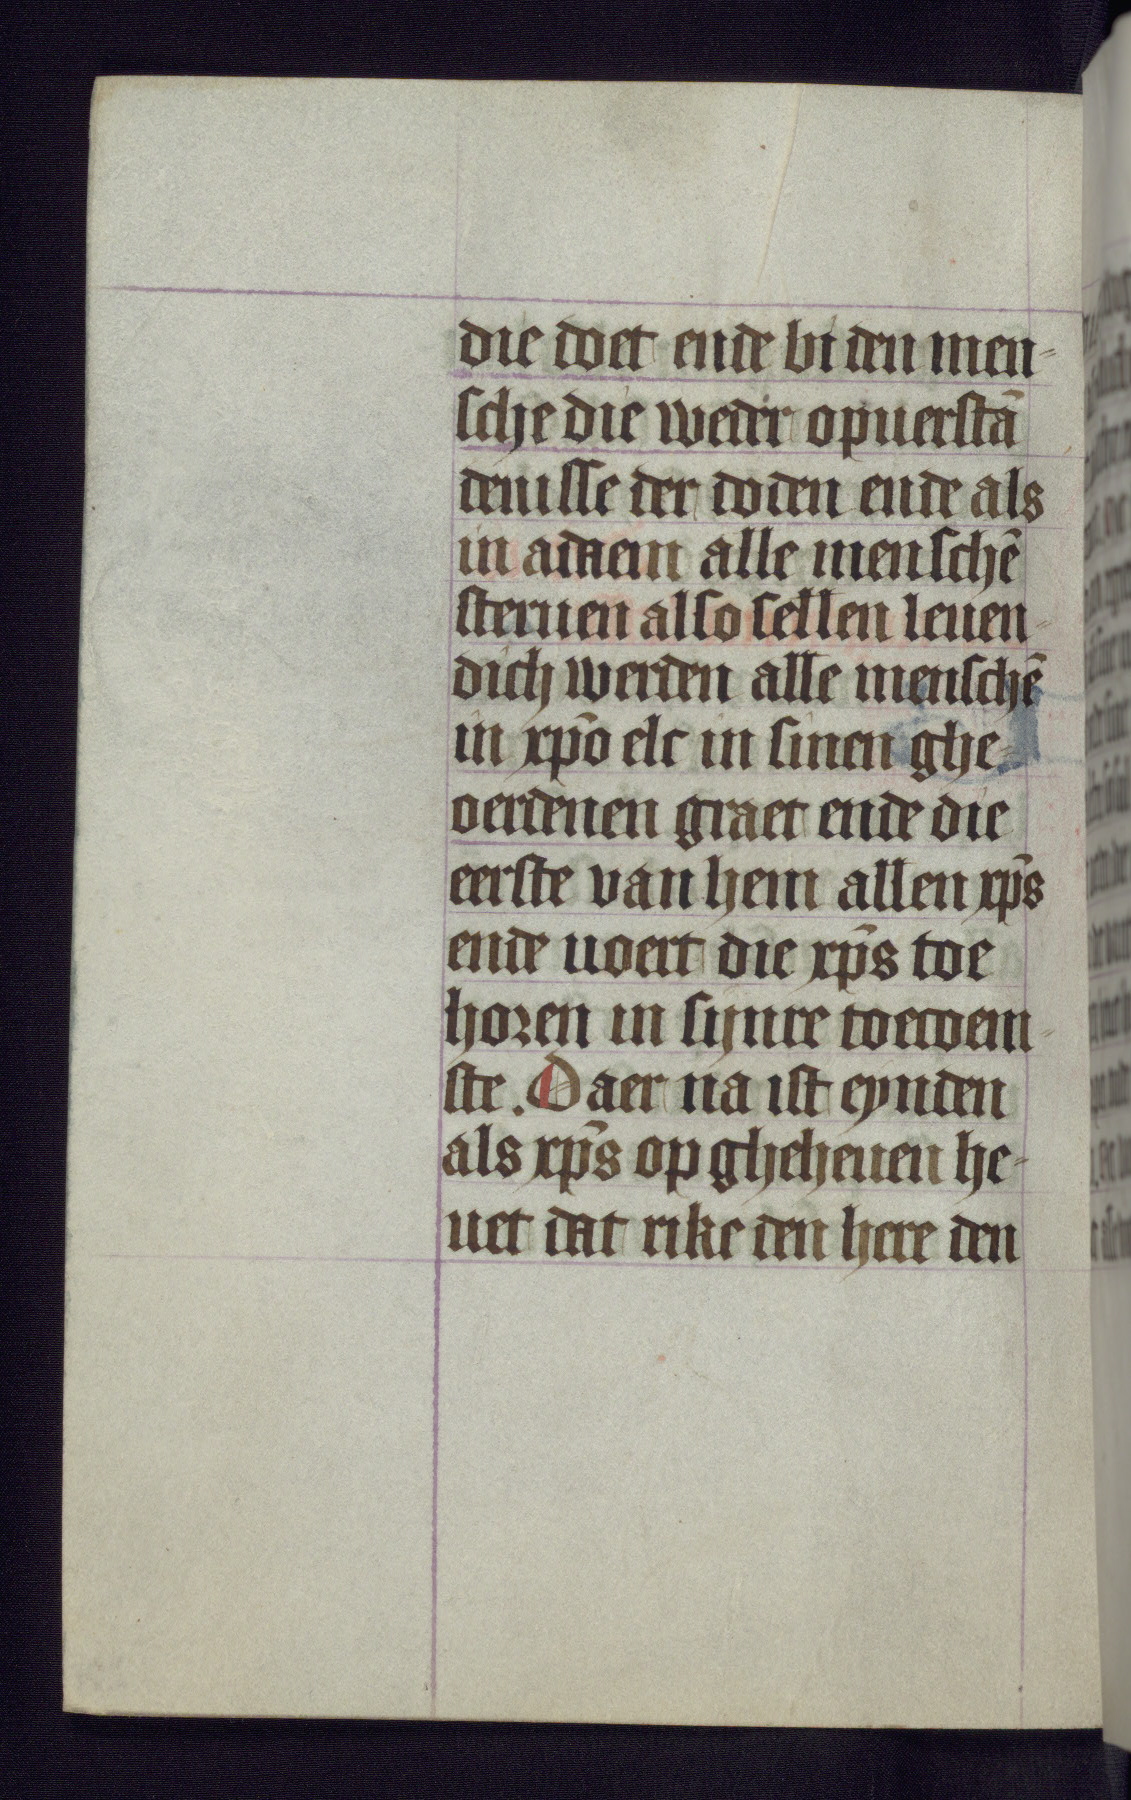 die doet ende bi den men-
sche die weder opuerstā
denisse der doden ende als
in adaem alle menschē
steruen also sellen leuen-
dich werden alle menschē
in xp̄o elc in sinen ghe-
oerdenen graet ende die
eerste van hem allen xp̄s
ende uoert die xp̄s toe
horen in sijnre toecoem-
ste. Daer na ist eynden
als xp̄s op gheheuen he-
uet dat rike den here den